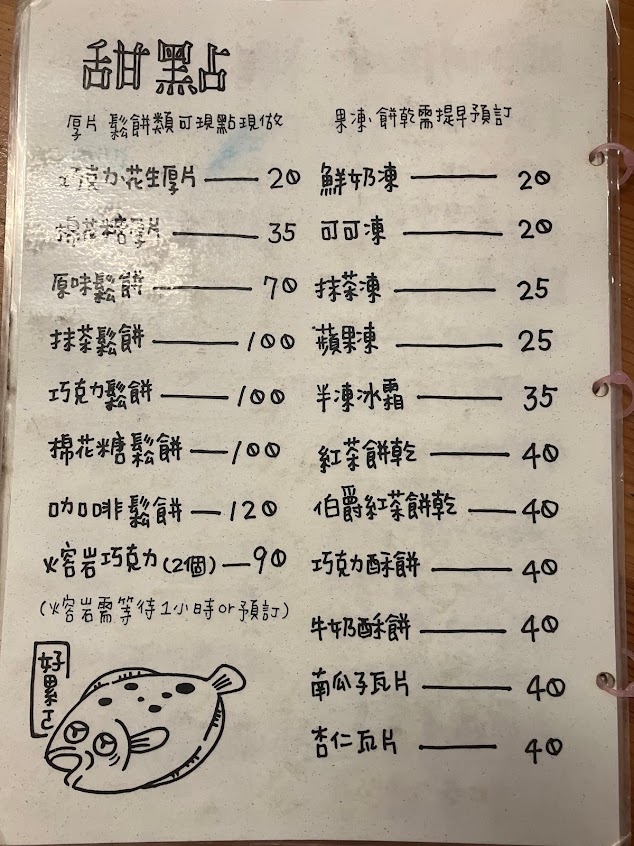 甜點
厚片 鬆餅類可現點現做
巧克力、花生厚片 —— 20
棉花糖厚片 —— 35
原味鬆餅 —— 70
抹茶鬆餅 —— 100
巧克力鬆餅 —— 100
棉花糖鬆餅 —— 100
咖啡鬆餅 —— 120
熔岩巧克力(2個) —— 90
(熔岩需等待1小時or預訂)
好累ㄛ
果凍、餅乾需提早預訂
鮮奶凍 —— 20
可可凍 —— 20
抹茶凍 —— 25
蘋果凍 —— 25
半凍冰霜 —— 35
紅茶餅乾 —— 40
伯爵紅茶餅乾 —— 40
巧克力酥餅 —— 40
牛奶酥餅 —— 40
南瓜子瓦片 —— 40
杏仁瓦片 —— 40